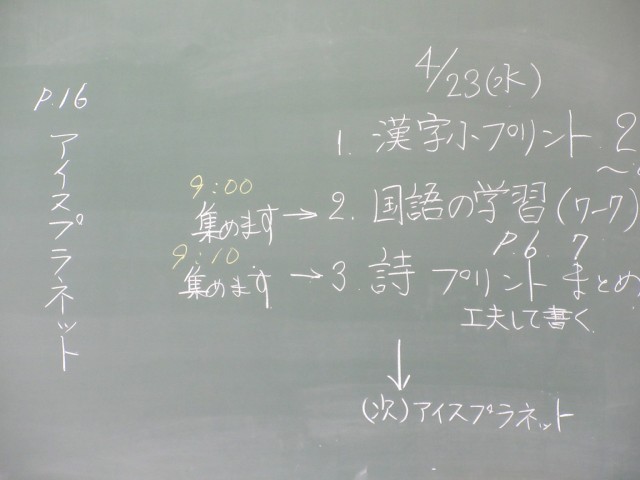 4/23(水)
1. 漢字小プリント 2
～
9:00
集めます→2. 国語の学習(ワーク)
P.6. 7
9:10
集めます→3. 詩 プリント まとめ
工夫して書く
↓
(次)アイスプラネット
P.16
アイスプラネット